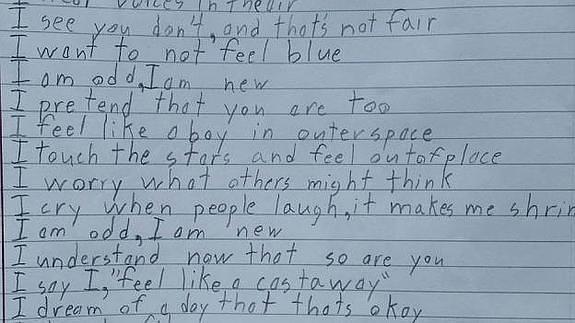 voices in the air
I see you don't, and that's not fair
I want to not feel blue
I am odd, I am new
I pretend that you are too
I feel like a boy in outerspace
I touch the stars and feel outofplace
I worry what others might think
I cry when people laugh, it makes me shrin
I am odd, I am new
I understand now that so are you
I say I, "feel like a castaway"
I dream of a day that thats okay